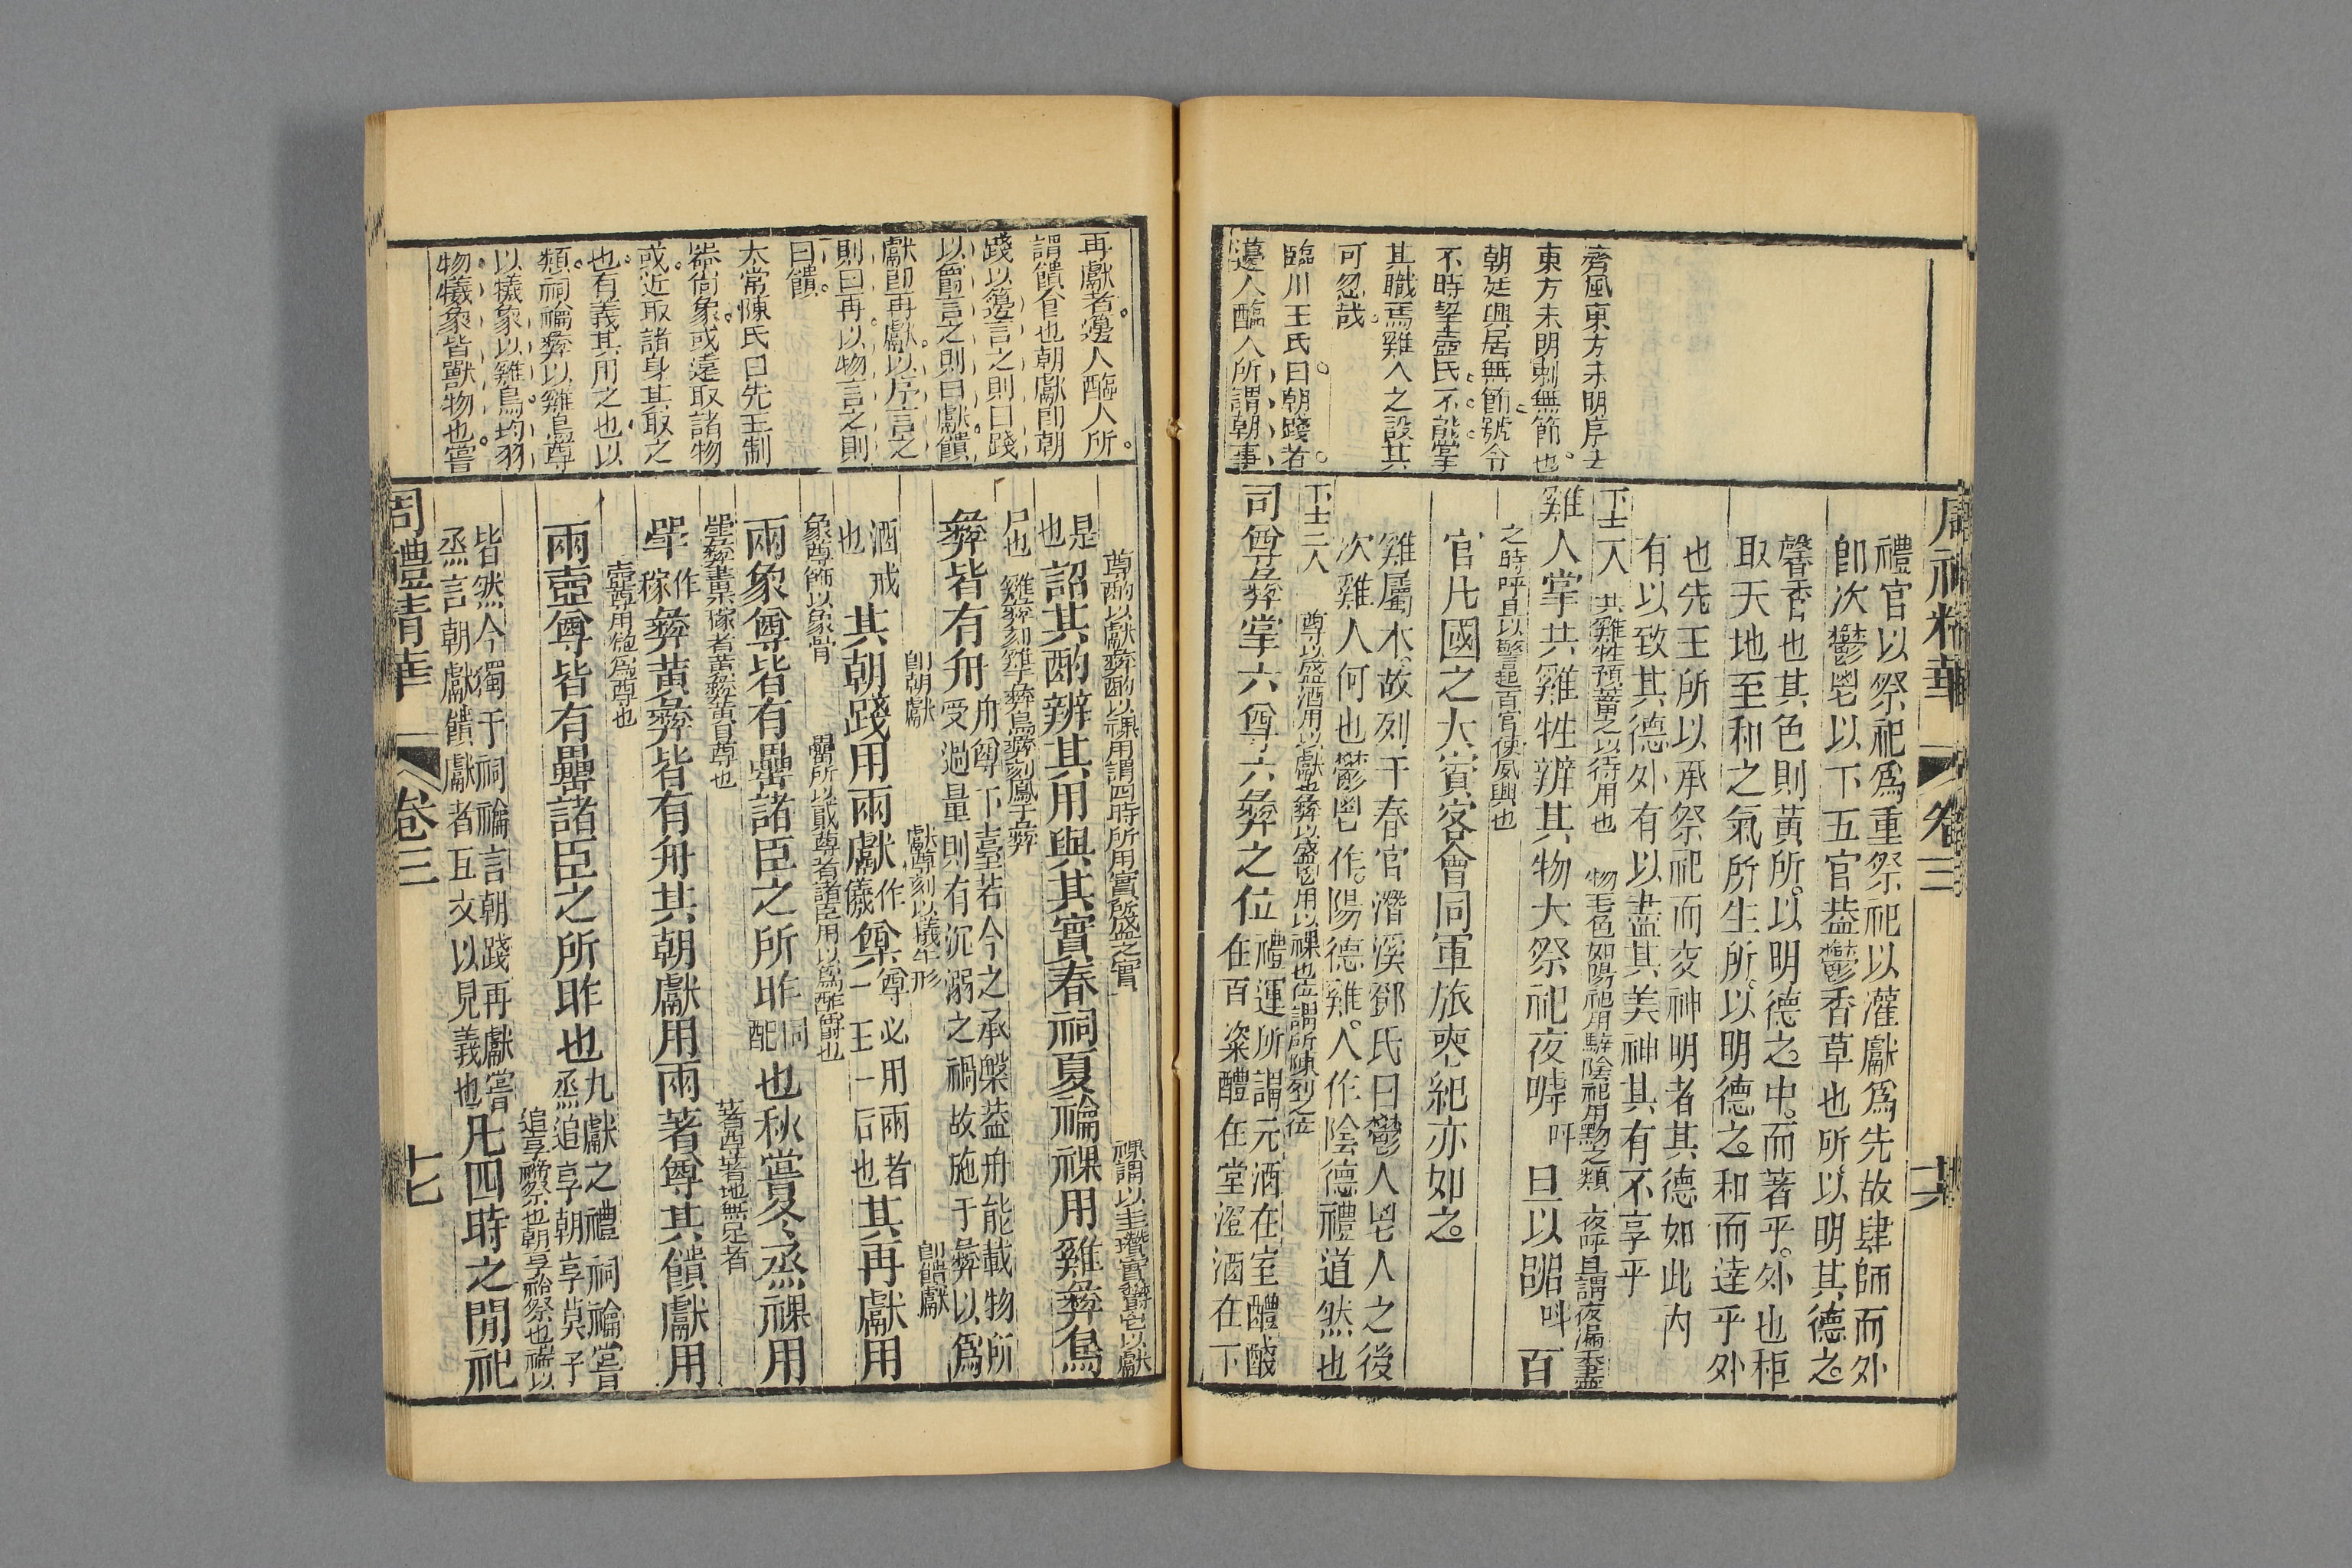 周禮精華
卷三
十六
齊風東方未明序云
東方未明刺無節也
朝廷興居無節號令
不時挈壺氏不能掌
其職焉雞人之設其
可忽哉
臨川王氏曰朝踐者
籩人醢人所謂朝事
禮官以祭祀爲重祭祀以灌獻爲先故肆師而外
卽次鬱鬯以下五官葢鬱香草也所以明其德之
馨香也其色則黃所以明德之中而著乎外也秬
取天地至和之氣所生所以明德之和而達乎外
也先王所以承祭祀而交神明者其德如此內
有以致其德外有以盡其美神其有不享乎
下士一人
共雞牲預蓄之以待用也
物毛色如陽祀用騂陰祀用黝之類
夜呼旦謂夜漏未盡
雞人掌共雞牲辨其物大祭祀夜嘑呼旦以嘂叫百
之時呼旦以警起百官使夙興也
官凡國之大賓客會同軍旅喪紀亦如之
雞屬木故列于春官潛溪鄧氏曰鬱人鬯人之後
次雞人何也鬱鬯作陽德雞人作陰德禮道然也
下士二人
尊以盛酒用以獻也彝以盛鬯用以祼也位謂所陳列之位
司尊彝掌六尊六彝之位
禮運所謂元酒在室醴醆
在百粢醴在堂澄酒在下
再獻者籩人醢人所
謂饋食也朝獻卽朝
踐以籩言之則曰踐
以爵言之則曰獻饋
獻卽再獻以序言之
則曰再以物言之則
曰饋
太常陳氏曰先王制
器尙象或遠取諸物
或近取諸身其取之
也有義其用之也以
類祠禴彝以雞鳥尊
以犧象以雞鳥均羽
物犧象皆獸物也嘗
尊酌以獻彝酌以祼用謂四時所用實所盛之實
祼謂以圭瓚實鬱鬯以獻
是
也
詔其酌辨其用與其實春祠夏禴祼用雞彝鳥
尸也
雞彝刻雞于彝鳥彝刻鳳于彝
彝皆有舟
舟尊下臺若今之承槃葢舟能載物所
受過量則有沉溺之禍故施于彝以爲
卽朝獻
獻尊刻以犧牛形
卽饋獻
酒戒
也
其朝踐用兩獻作犧尊
尊必用兩者
一王一后也
其再獻用
象尊飾以象骨
罍所以貳尊者諸臣用以爲酢爵也
兩象尊皆有罍諸臣之所昨同酢也秋嘗冬烝祼用
斝彝畫禾稼者黃彝黃目尊也
著尊著地無足者
斝作稼彝黃彝皆有舟其朝獻用兩著尊其饋獻用
壺尊用匏爲尊也
兩壺尊皆有罍諸臣之所昨也
九獻之禮祠禴嘗
烝追享朝享莫予
追享禘祭也朝享祫祭也
皆然今獨于祠禴言朝踐再獻嘗
烝言朝獻饋獻者互文以見義也
凡四時之閒祀
周禮精華
卷三
十七